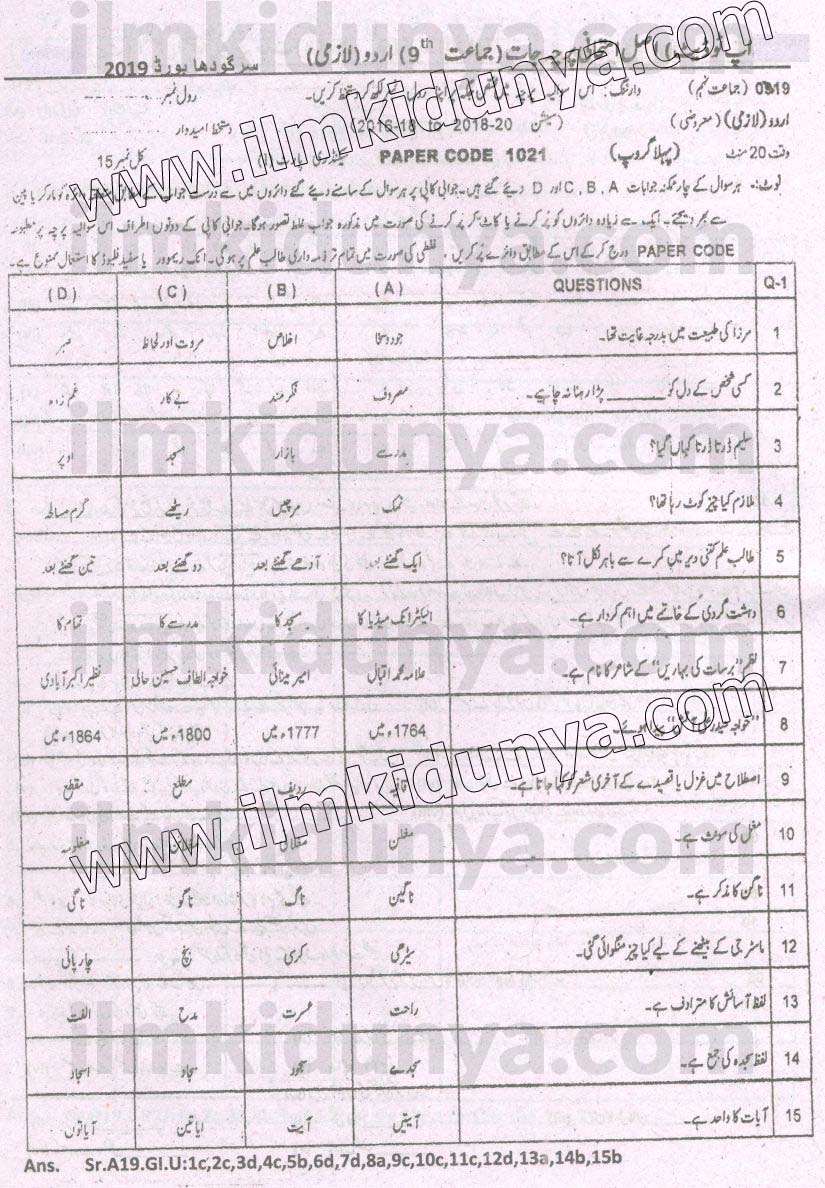 www.ilmkidunya.com
اپ ٹو ڈیٹ اصل پرچہ جات (جماعت 9th) اردو (لازمی) سرگودھا بورڈ 2019
0919 (جماعت نہم) وارننگ: اس سوالیہ پرچہ پر اپنا رول نمبر لکھ کر دستخط کریں۔ رول نمبر
اردو (لازمی) (معروضی) (سیشن 2016-18 to 2018-20) دستخط امیدوار
وقت 20 منٹ (پہلا گروپ) PAPER CODE 1021 کل نمبر 15
نوٹ:- ہر سوال کے چار ممکنہ جوابات A ,B ,C اور D دیئے گئے ہیں۔ جوابی کاپی پر ہر سوال کے سامنے دیئے گئے دائروں میں سے درست جواب کے مطابق متعلقہ دائرہ کو مارکر یا پین
سے بھر دیجئے۔ ایک سے زیادہ دائروں کو پُر کرنے یا کاٹ کر پُر کرنے کی صورت میں مذکورہ جواب غلط تصور ہوگا۔ جوابی کاپی کے دونوں اطراف اس سوالیہ پرچہ پر مطبوعہ
PAPER CODE درج کر کے اس کے مطابق دائرے پُر کریں، غلطی کی صورت میں تمام تر ذمہ داری طالب علم پر ہوگی۔ انک ریموور یا سفید فلیوڈ کا استعمال ممنوع ہے۔
Q-1 QUESTIONS (A) (B) (C) (D)
1 مرزا کی طبیعت میں بدرجہ غایت تھا۔ جود و سخا اخلاص مروت اور لحاظ صبر
2 کسی شخص کے دل کو ______ پڑا رہنا نہ چاہیے۔ مصروف فکر مند بے کار غم زدہ
3 سلیم ڈرتا ڈرتا کہاں گیا؟ مدرسے بازار مسجد اوپر
4 ملازم کیا چیز کوٹ رہا تھا؟ نمک مرچیں ریٹھے گرم مسالہ
5 طالب علم کتنی دیر میں کمرے سے باہر نکل آتا؟ ایک گھنٹے بعد آدھے گھنٹے بعد دو گھنٹے بعد تین گھنٹے بعد
6 دہشت گردی کے خاتمے میں اہم کردار ہے۔ الیکٹرانک میڈیا کا مسجد کا مدرسے کا تمام کا
7 نظم "برسات کی بہاریں" کے شاعر کا نام ہے۔ علامہ محمد اقبال امیر مینائی خواجہ الطاف حسین حالی نظیر اکبر آبادی
8 "خواجہ حیدر علی آتش" پیدا ہوئے۔ 1764ء میں 1777ء میں 1800ء میں 1864ء میں
9 اصطلاح میں غزل یا قصیدے کے آخری شعر کو کہا جاتا ہے۔ قافیہ ردیف مطلع مقطع
10 مغل کی مونث ہے۔ مغلن مغلانی مغلوب
11 ناگن کا مذکر ہے۔ ناگین ناگ ناگو ناگی
12 ماسٹر جی کے بیٹھنے کے لیے کیا چیز منگوائی گئی۔ سیڑھی کرسی بنچ چارپائی
13 لفظ آسائش کا مترادف ہے۔ راحت عسرت مدح الفت
14 لفظ سجدہ کی جمع ہے۔ سجدے سجود سجاد اسجاد
15 آیات کا واحد ہے۔ آیتیں آیت ایاتین آیاتوں
Ans. Sr.A19.GI.U:1c,2c,3d,4c,5b,6d,7d,8a,9c,10c,11c,12d,13a,14b,15b
www.ilmkidunya.com
ilmkidunya.com
ilmkidunya.com
ilmkidunya.com
ilmkidunya.com
ilmkidunya.com